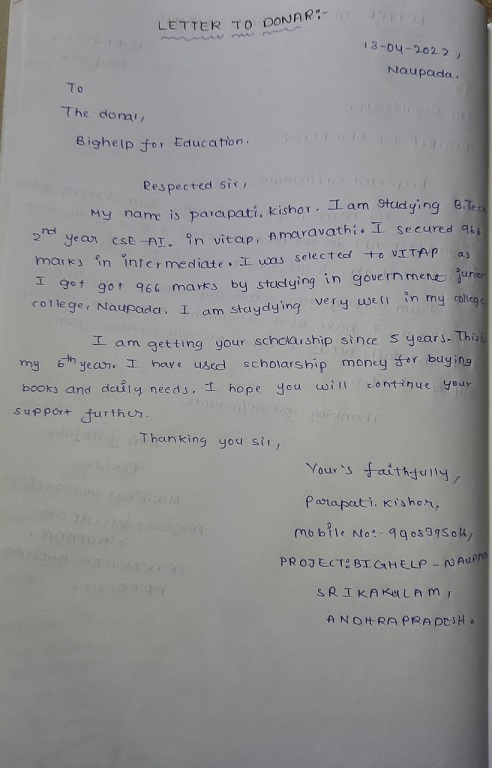 LETTER TO DONAR:-
13-04-2022,
Naupada.
To
The donar,
Bighelp for Education.
Respected sir,
My name is parapati. kishor. I am studying B.Tech
2nd year CSE-AI. in vitap, Amaravathi. I secured 966
marks in intermediate. I was selected to VITAP as
I got got 966 marks by studying in government junior
college, Naupada. I am staydying very well in my college
I am getting your scholarship since 5 years. This
my 6th year. I have used scholarship money for buying
books and daily needs. I hope you will continue your
support further.
Thanking you sir,
Your's faithfully,
Parapati. Kishor,
Mobile No:-
PROJECT: BIGHELP - NAUPADA
SRIKAKULAM,
ANDHRAPRADESH.